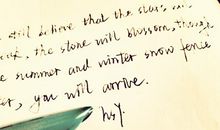 still believe that the stars
the stone will blossom,
summer and winter snow fence
you will arrive.